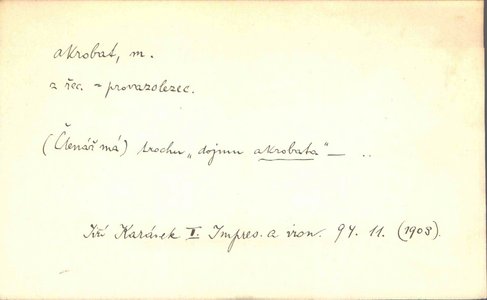 akrobat, m.
z řec. = provazolezec.
(Čtenář má) trochu „dojmu akrobata“ — ..
Jiří Karásek I. Impres. a iron. 94. 11. (1903).